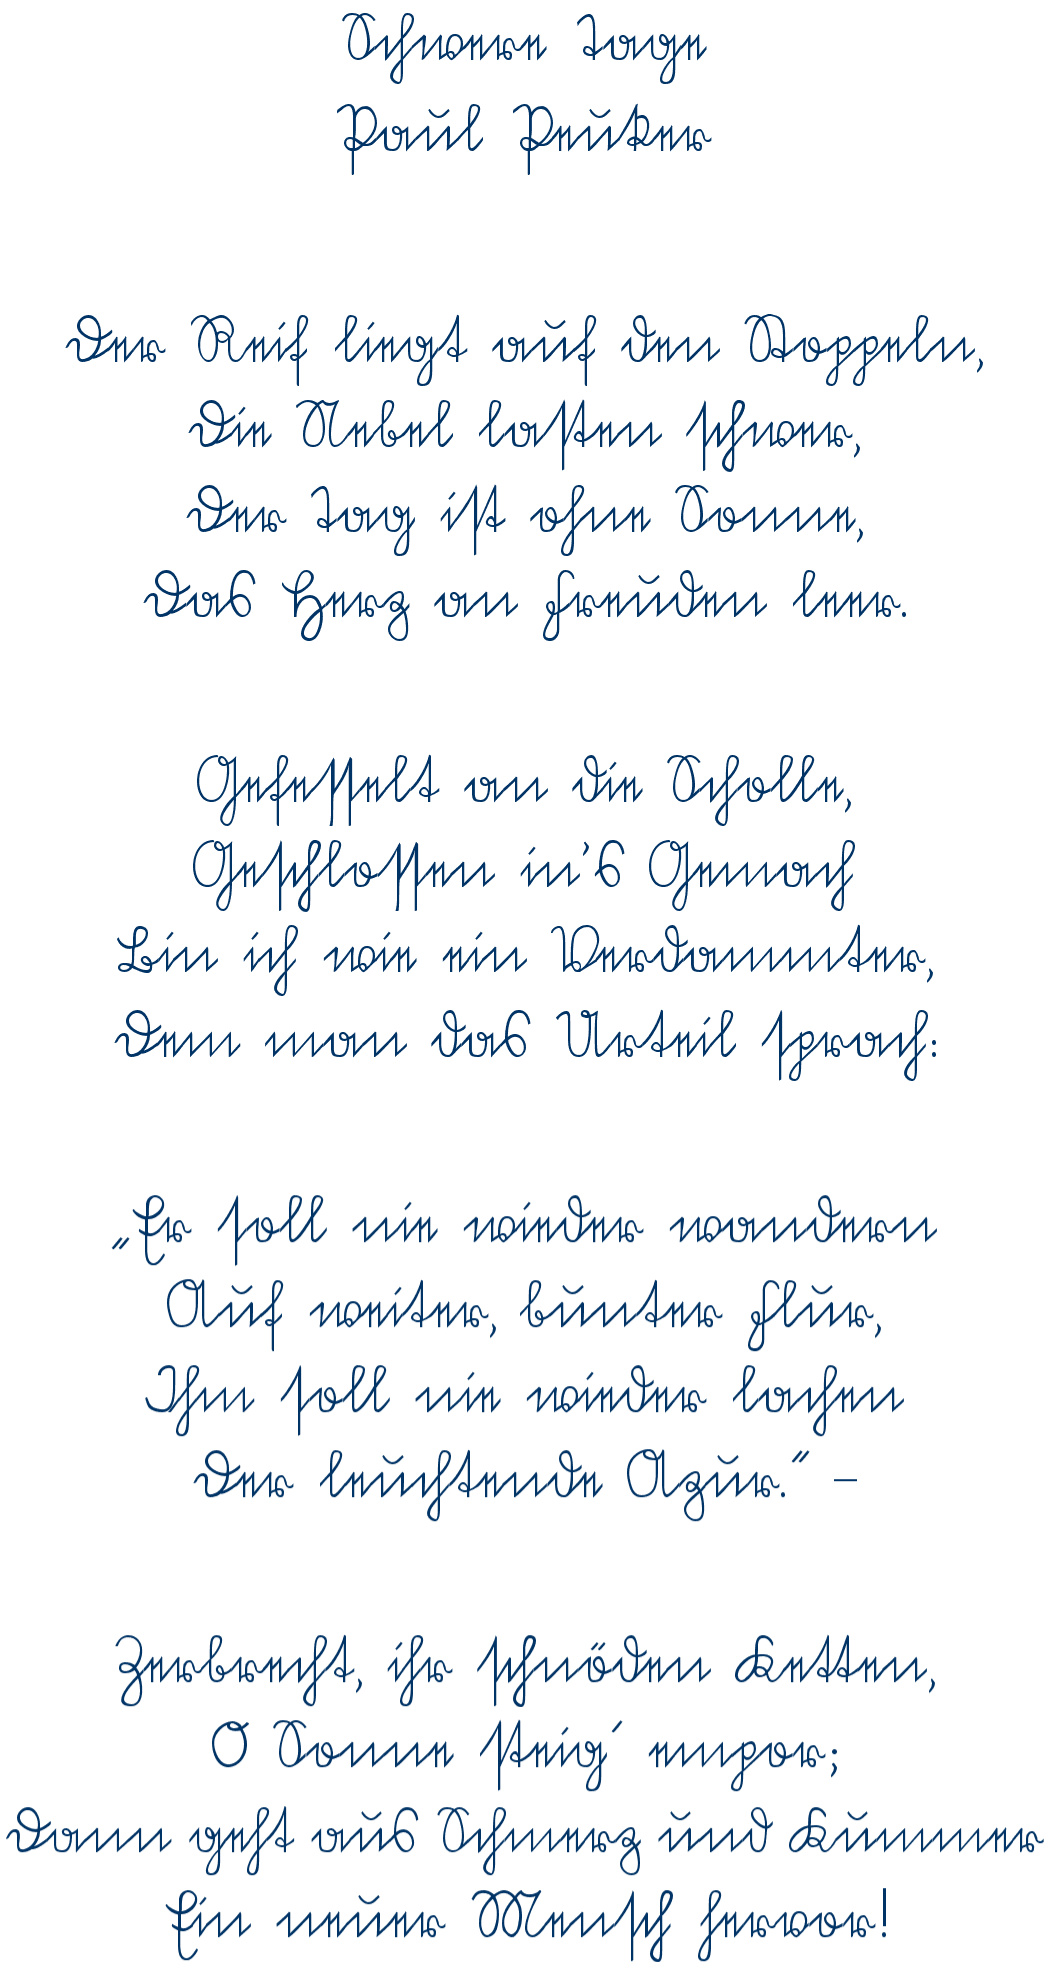 Schwere Tage
Paul Peuker
Der Reif liegt auf den Stoppeln,
Die Nebel lasten schwer,
Der Tag ist ohne Sonne,
Das Herz an Freuden leer.
Gefesselt an die Scholle,
Geschlossen in’s Gemach
Bin ich wie ein Verdammter,
Dem man das Urteil sprach:
„Er soll nie wieder wandern
Auf weiter, bunter Flur,
Ihm soll nie wieder lachen
Der leuchtende Azur.“ –
Zerbrecht, ihr schnöden Ketten,
O Sonne steig´ empor;
Dann geht aus Schmerz und Kummer
Ein neuer Mensch hervor!